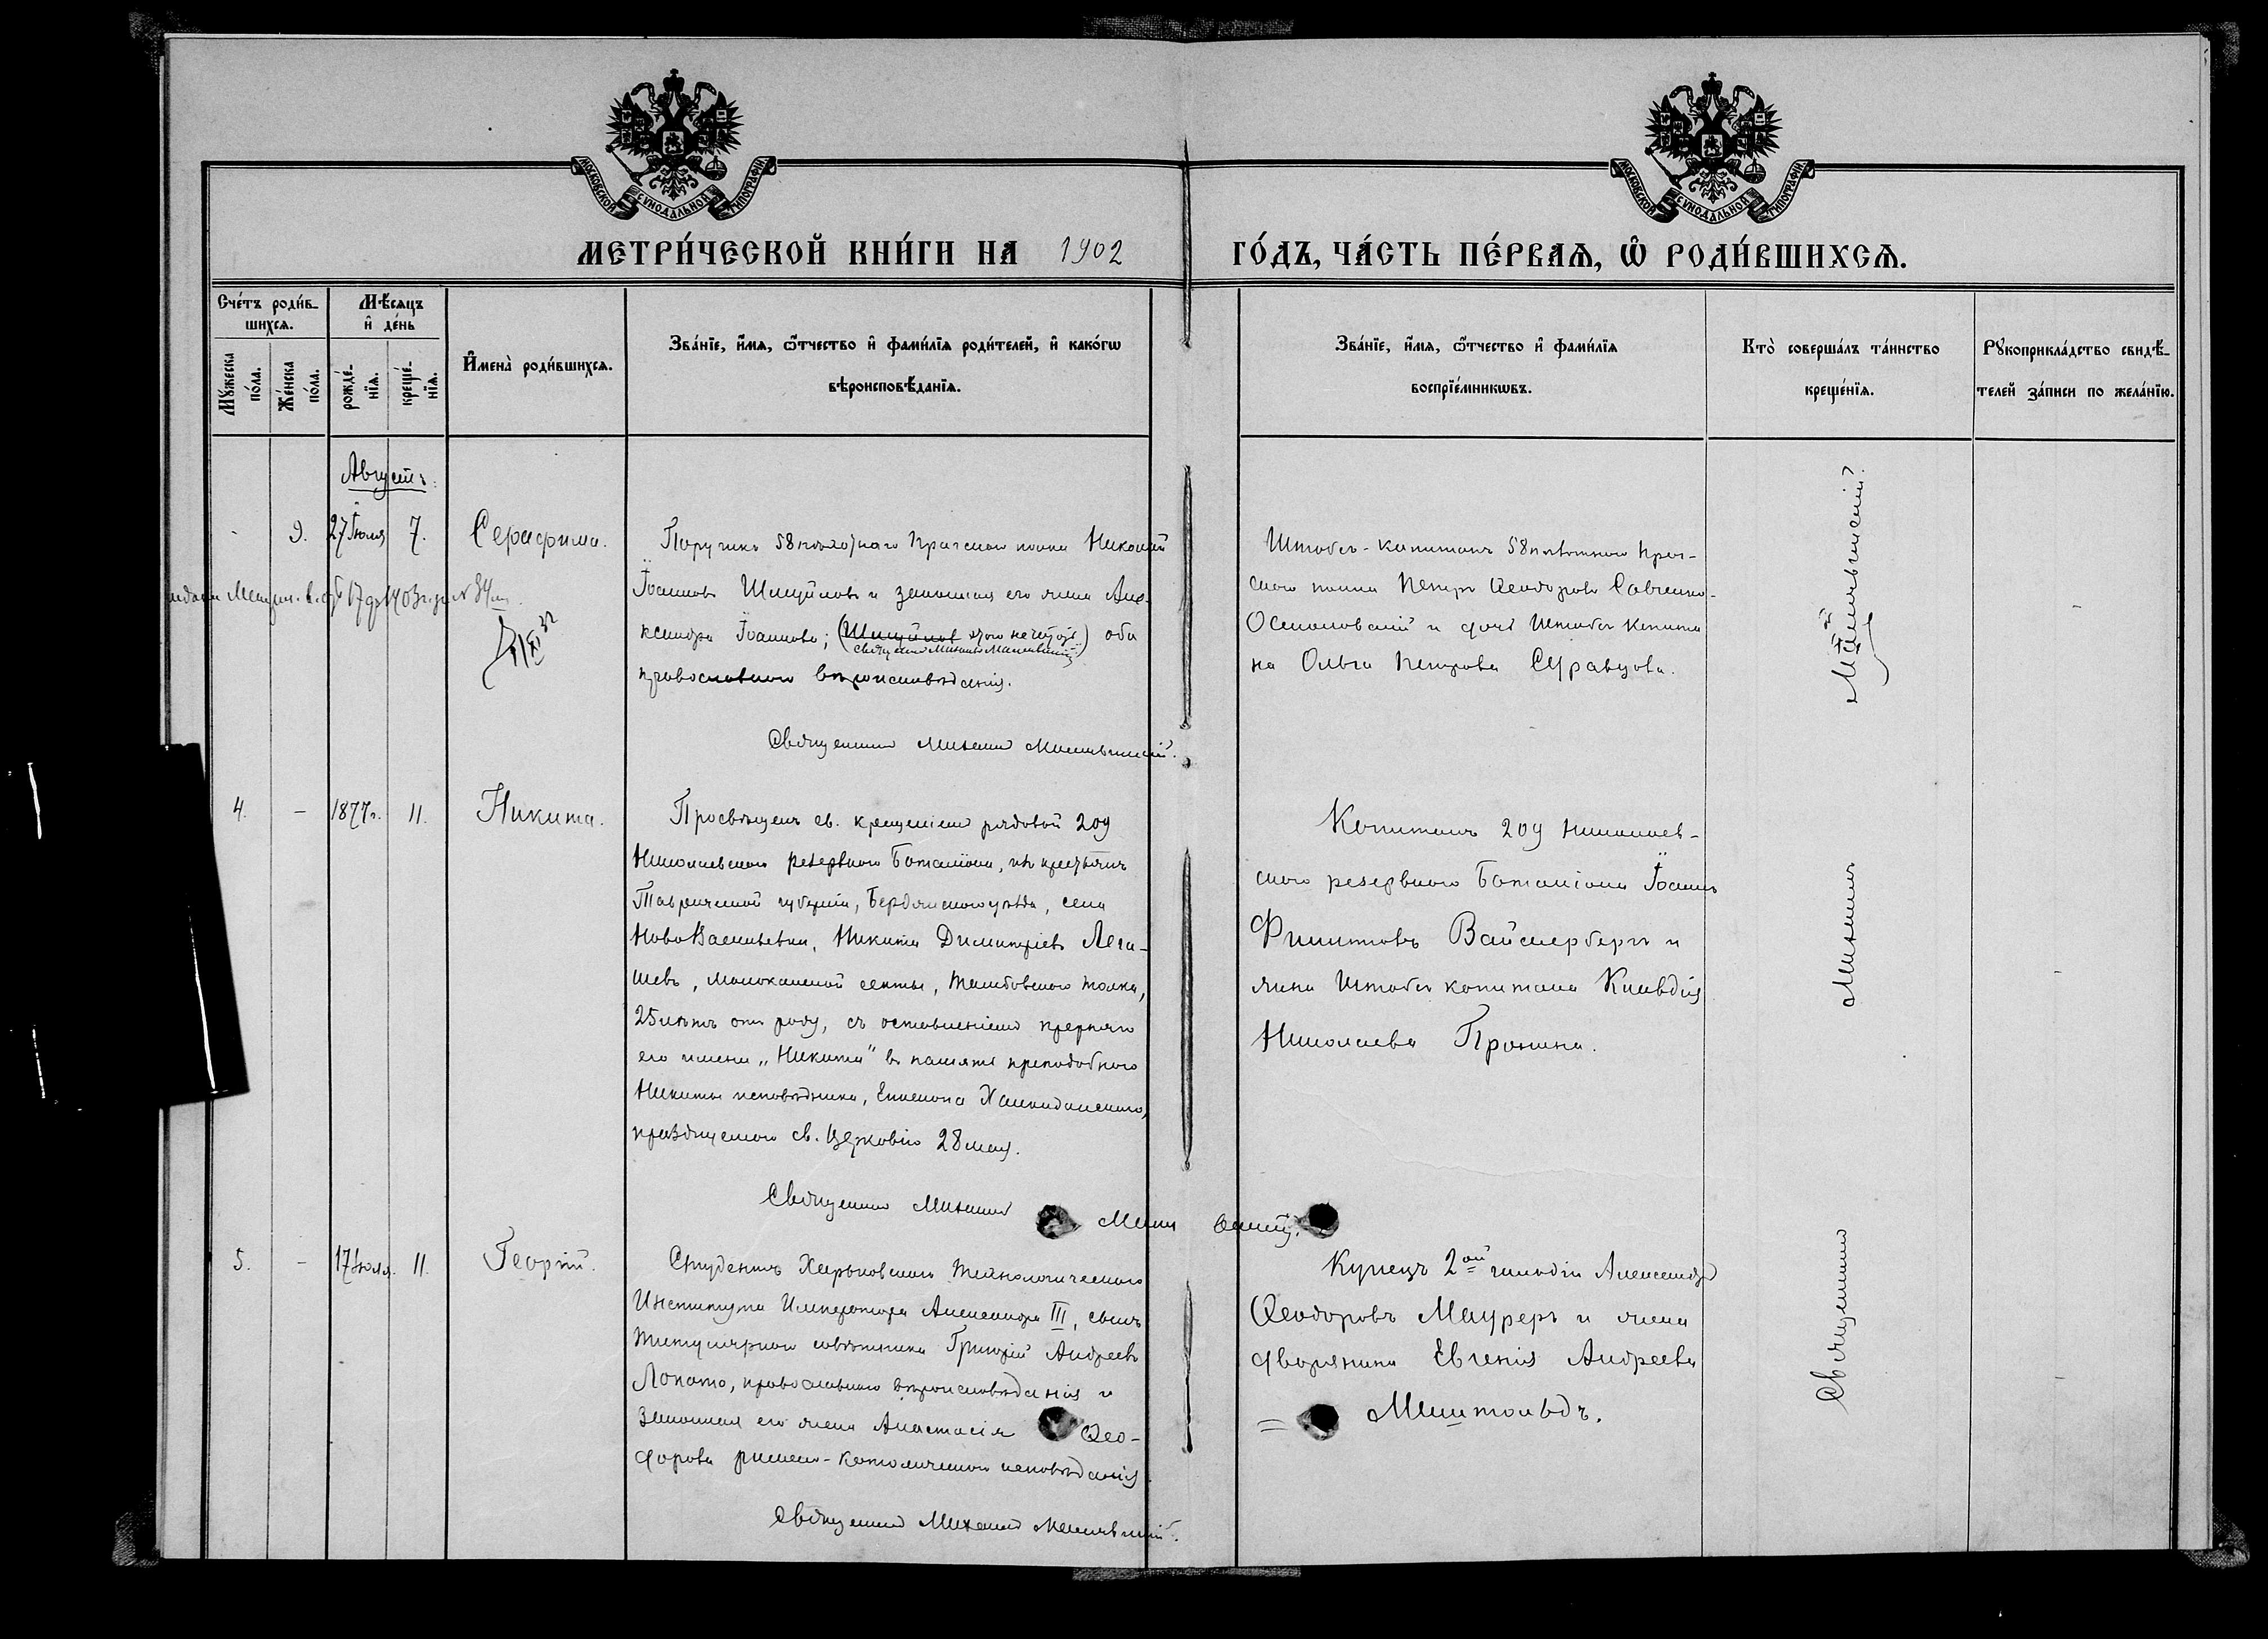 МОСКОВСКОЙ СУНОДАЛЬНОЙ ТИПОГРАФІИ
МОСКОВСКОЙ СУНОДАЛЬНОЙ ТИПОГРАФІИ
МЕТРИ́ЧЕСКОЙ КНИ́ГИ НА 1902 ГО́ДЪ, ЧА́СТЬ ПЕ́РВАѦ, Ѡ҆ РОДИ́ВШИХСѦ.
Сче́тъ роди́в-
шихсѧ.
Мꙋ́жеска
по́ла.
Же́нска
по́ла.
Мѣ́сяцъ
и҆ де́нь
рожде́-
нїѧ.
креще́-
нїѧ.
И҆мена̀ роди́вшихсѧ.
Зва́нїе, и҆́мѧ, ѻ҆́тчество и҆ фами́лїѧ роди́телей, и҆ како́гѡ
вѣроисповѣ́данїѧ.
Зва́нїе, и҆́мѧ, ѻ҆́тчество и҆ фами́лїѧ
воспрїе́мникѡвъ.
Кто̀ соверша́лъ та́инство
креще́нїѧ.
Рꙋкоприкла́дство свидѣ́-
телей за́писи по жела́нїю.
Августъ.
- 9. 27 Іюля 7. Серафима.
Поручикъ 58 пѣхотнаго Прагскаго полка Николай
Іоанновъ и законная его жена Але-
ксандра Іоаннова; ( ) оба
православнаго вѣроисповѣданія.
Священникъ Михаилъ
Штабсъ-капитанъ 58 пѣхотнаго Праг-
скаго полка Петръ Ѳеодоровъ Савченко-
Осмоловскій и дочь Штабсъ капита
на Ольга Петрова
4. - 1877 г. 11. Никита.
Просвѣщенъ св. крещеніемъ рядовой 209
Николаевскаго резервнаго Баталіона, изъ крестьянъ
Таврической губерніи, Бердянскаго уѣзда, села
НовоВасильевки, Никита Димитріевъ Лега-
шевъ, молоканской секты, Тамбовскаго толка,
25 лѣтъ отъ роду, съ оставленіемъ прежняго
его имени „Никита" въ память преподобнаго
Никиты исповѣдника, Епископа Халкидонскаго,
празднуемаго св. Церковію 28 мая.
Священникъ Михаилъ
Капитанъ 209 Николаев-
скаго резервнаго Баталіона Іоаннъ
Филиповъ Вайсмербергъ и
жена Штабсъ капитана Клавдія
Николаева Пронина.
Михаилъ
5. - 17 Іюля. 11. Георгій.
Студентъ Харьковскаго Технологическаго
Института Императора Александра III, сынъ
Титулярнаго совѣтника Григорій Андреевъ
Лопато, православнаго вѣроисповѣданія и
законная его жена Анастасія Ѳео-
дорова римско-католическаго исповѣданія
Священникъ Михаилъ
Купецъ 2ой гильдіи Александръ
Ѳеодоровъ Мауреръ и жена
дворянина Евгенія Андреева
Священникъ